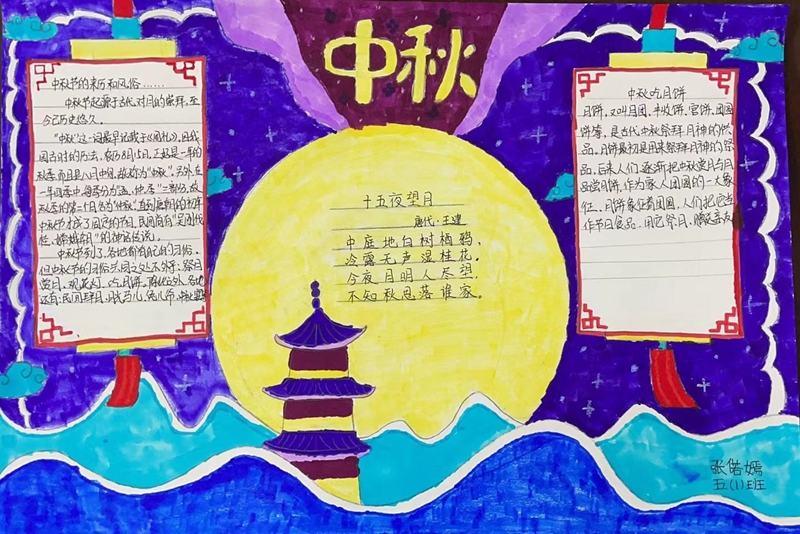 中秋
中秋节的来历和风俗……
中秋节起源于古代对月的崇拜,至
今已历史悠久。
"中秋"这一词最早记载于《周礼》,
国古时的历法,农历8月15日,正好是一年的
秋季,而且是八月中旬,故称为"中秋"。另外在
中秋节才成了固定的节日,民间尚有"吴刚伐
桂,嫦娥奔月"的神话传说。
中秋节到了,各地都有自己的习俗,
但中秋节的习俗共同之处不外乎:祭月
赏月、观花灯、吃月饼,
十五夜望月
唐代:王建
中庭地白树栖鸦,
冷露无声湿桂花。
今夜月明人尽望,
不知秋思落谁家。
中秋吃月饼
月饼,又叫月团、丰收饼、宫饼、团圆
饼等,是古代中秋祭拜月神的供
品。月饼最初是用来祭拜月神的祭
品,后来人们逐渐把中秋赏月与月
品尝月饼,作为家人团圆的一大象
征。月饼象征着团圆,人们把它当
作节日食品,用它祭月、赠送亲友
张偌嫣
五(1)班